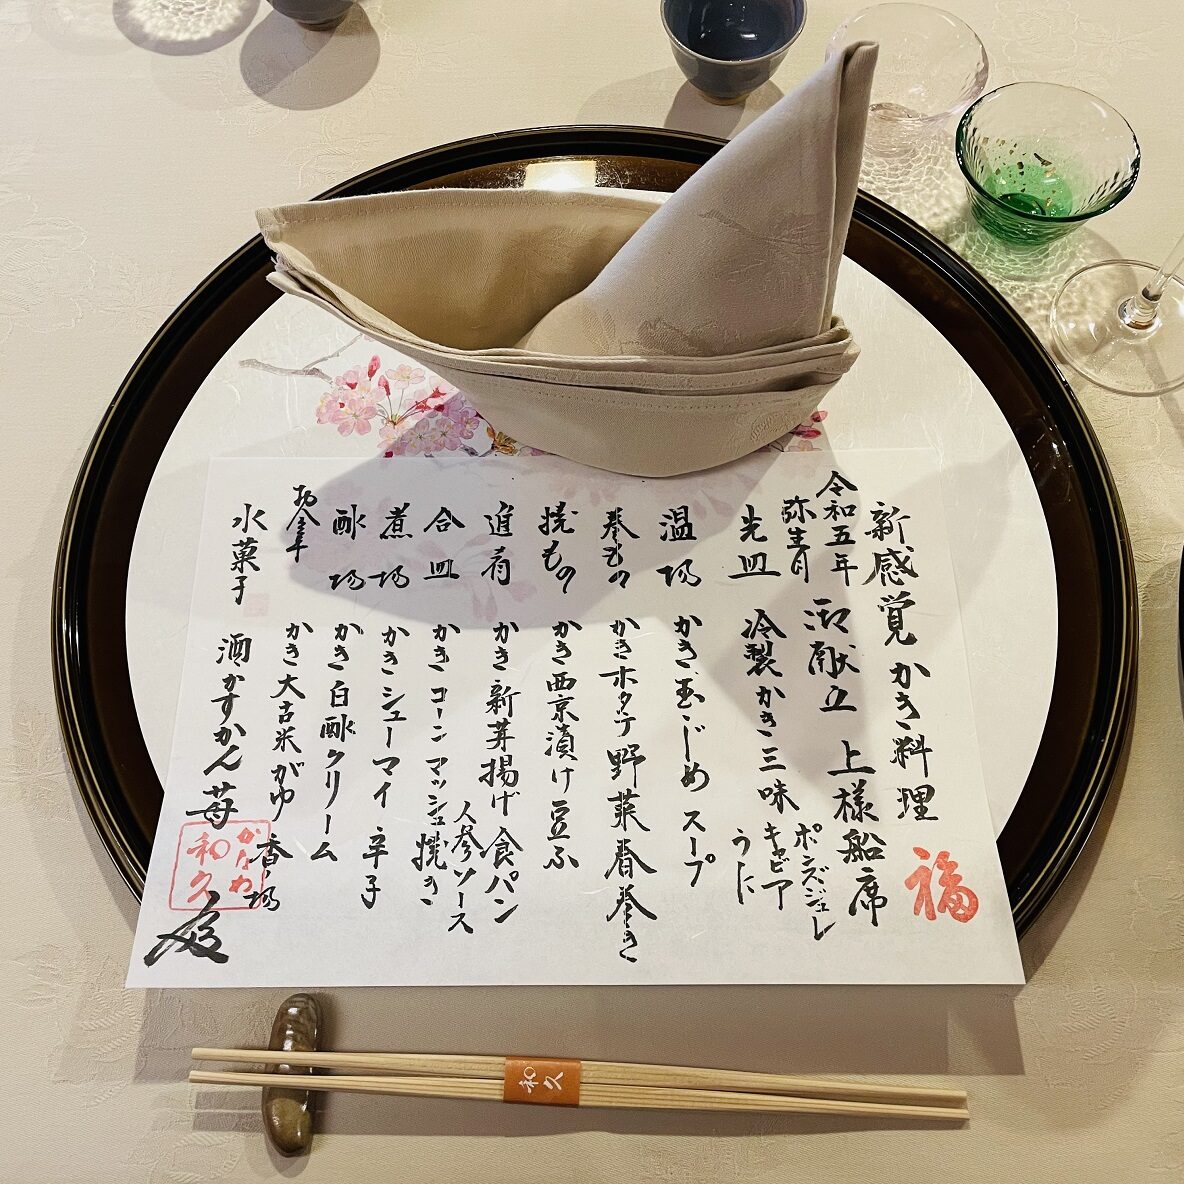 新感覚かき料理
福
令和五年
弥生月
御献立 上様船席
先皿 冷製かき三味
ポンズジュレ
キャビア
うに
温場 かき玉じめスープ
巻もの かきホタテ野菜春巻き
焼もの かき西京漬け豆ふ
進肴 かき新芽揚げ食パン
人参ソース
合皿 かきコーンマッシュ焼き
煮場 かきシューマイ辛子
酢場 かき白酢クリーム
お食事 かき大古米がゆ 香場
水菓子 酒かすかん苺
かなわ
和久
和久